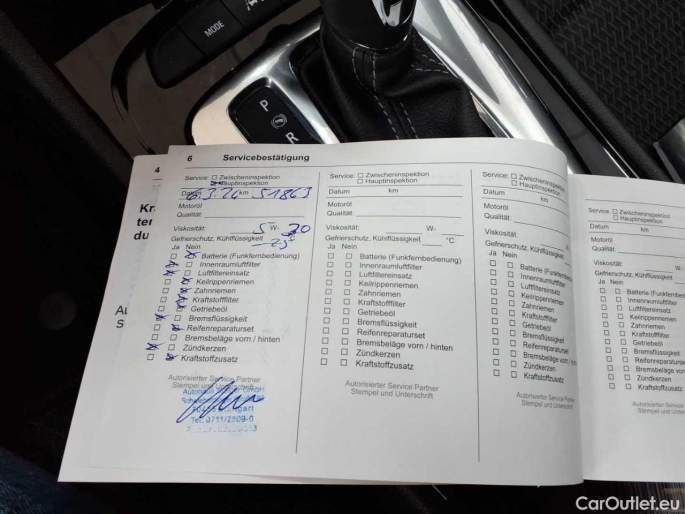 MODE
P
R
4
Kr
ter
du
Au
S
6 Servicebestätigung
Service: Zwischeninspektion
Hauptinspektion
Datum 6.3.24 km 51863
Motoröl
Qualität
Viskosität: 5 W- 30
Gefrierschutz, Kühlflüssigkeit
Ja Nein
Batterie (Funkfernbedienung)
Innenraumluftfilter
Luftfiltereinsatz
Keilrippenriemen
Zahnriemen
Kraftstofffilter
Getriebeöl
Bremsflüssigkeit
Reifenreparaturset
Bremsbeläge vorn / hinten
Zündkerzen
Kraftstoffzusatz
Autorisierter Service Partner
Stempel und Unterschrift
Tel. 0711/2809-0
Service: Zwischeninspektion
Hauptinspektion
Datum km
Motoröl
Qualität
Viskosität: W-
Gefrierschutz, Kühlflüssigkeit °C
Ja Nein
Batterie (Funkfernbedienung)
Innenraumluftfilter
Luftfiltereinsatz
Keilrippenriemen
Zahnriemen
Kraftstofffilter
Getriebeöl
Bremsflüssigkeit
Reifenreparaturset
Bremsbeläge vorn / hinten
Zündkerzen
Kraftstoffzusatz
Autorisierter Service Partner
Stempel und Unterschrift
Service: Zwischeninspektion
Hauptinspektion
Datum km
Motoröl
Qualität
Viskosität:
Gefrierschutz, Kühlflüssigkeit
Ja Nein
Batterie (Funkfernbedie
Innenraumluftfilter
Luftfiltereinsatz
Keilrippenriemen
Zahnriemen
Kraftstofffilter
Getriebeöl
Bremsflüssigkeit
Reifenreparaturset
Bremsbeläge vorn
Zündkerzen
Kraftstoffzusatz
Autorisierter Service Par
Stempel und Untersch
Service Zwischeninspektion
Hauptinspektion
Datum km
Motoröl
Qualität
Viskosität: W-
Gefrierschutz, Kühlflüssigkeit
Ja Nein
Batterie (Funkfernbed
Innenraumluftfilter
Luftfiltereinsatz
Keilrippenriemen
Zahnriemen
Kraftstofffilter
Getriebeöl
Bremsflüssigkeit
Reifenreparaturset
Bremsbeläge vorn / hi
Zündkerzen
Kraftstoffzusatz
Autorisierter Service Par
Stempel und Unterschr
CarOutlet.eu